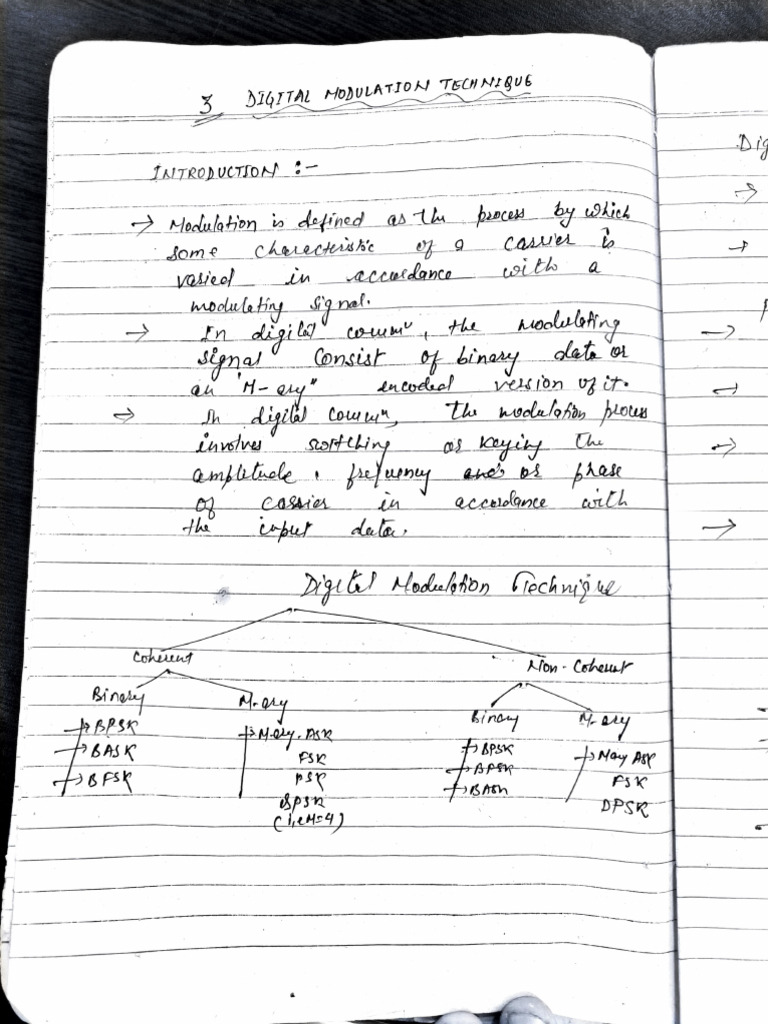 3 DIGITAL MODULATION TECHNIQUE
INTRODUCTION :-
→ Modulation is defined as the process by which
some characteristic of a carrier is
varied in accordance with a
modulating signal.
→ In digital commⁿ, the modulating
signal consist of binary data or
an "M-ary" encoded version of it.
→ In digital commⁿ, the modulation process
involves switching or keying the
amplitude, frequency or phase
of carrier in accordance with
the input data.
Digital Modulation Technique
Coherent Non-Coherent
Binary M-ary Binary M-ary
→ BPSK → M-ary-ASK → BPSK → Mary ASK
→ BASK FSK → BFSK FSK
→ BFSK PSK → BASK DPSK
QPSK
(i,e M=4)
Dig
→
→
→
→
→
→